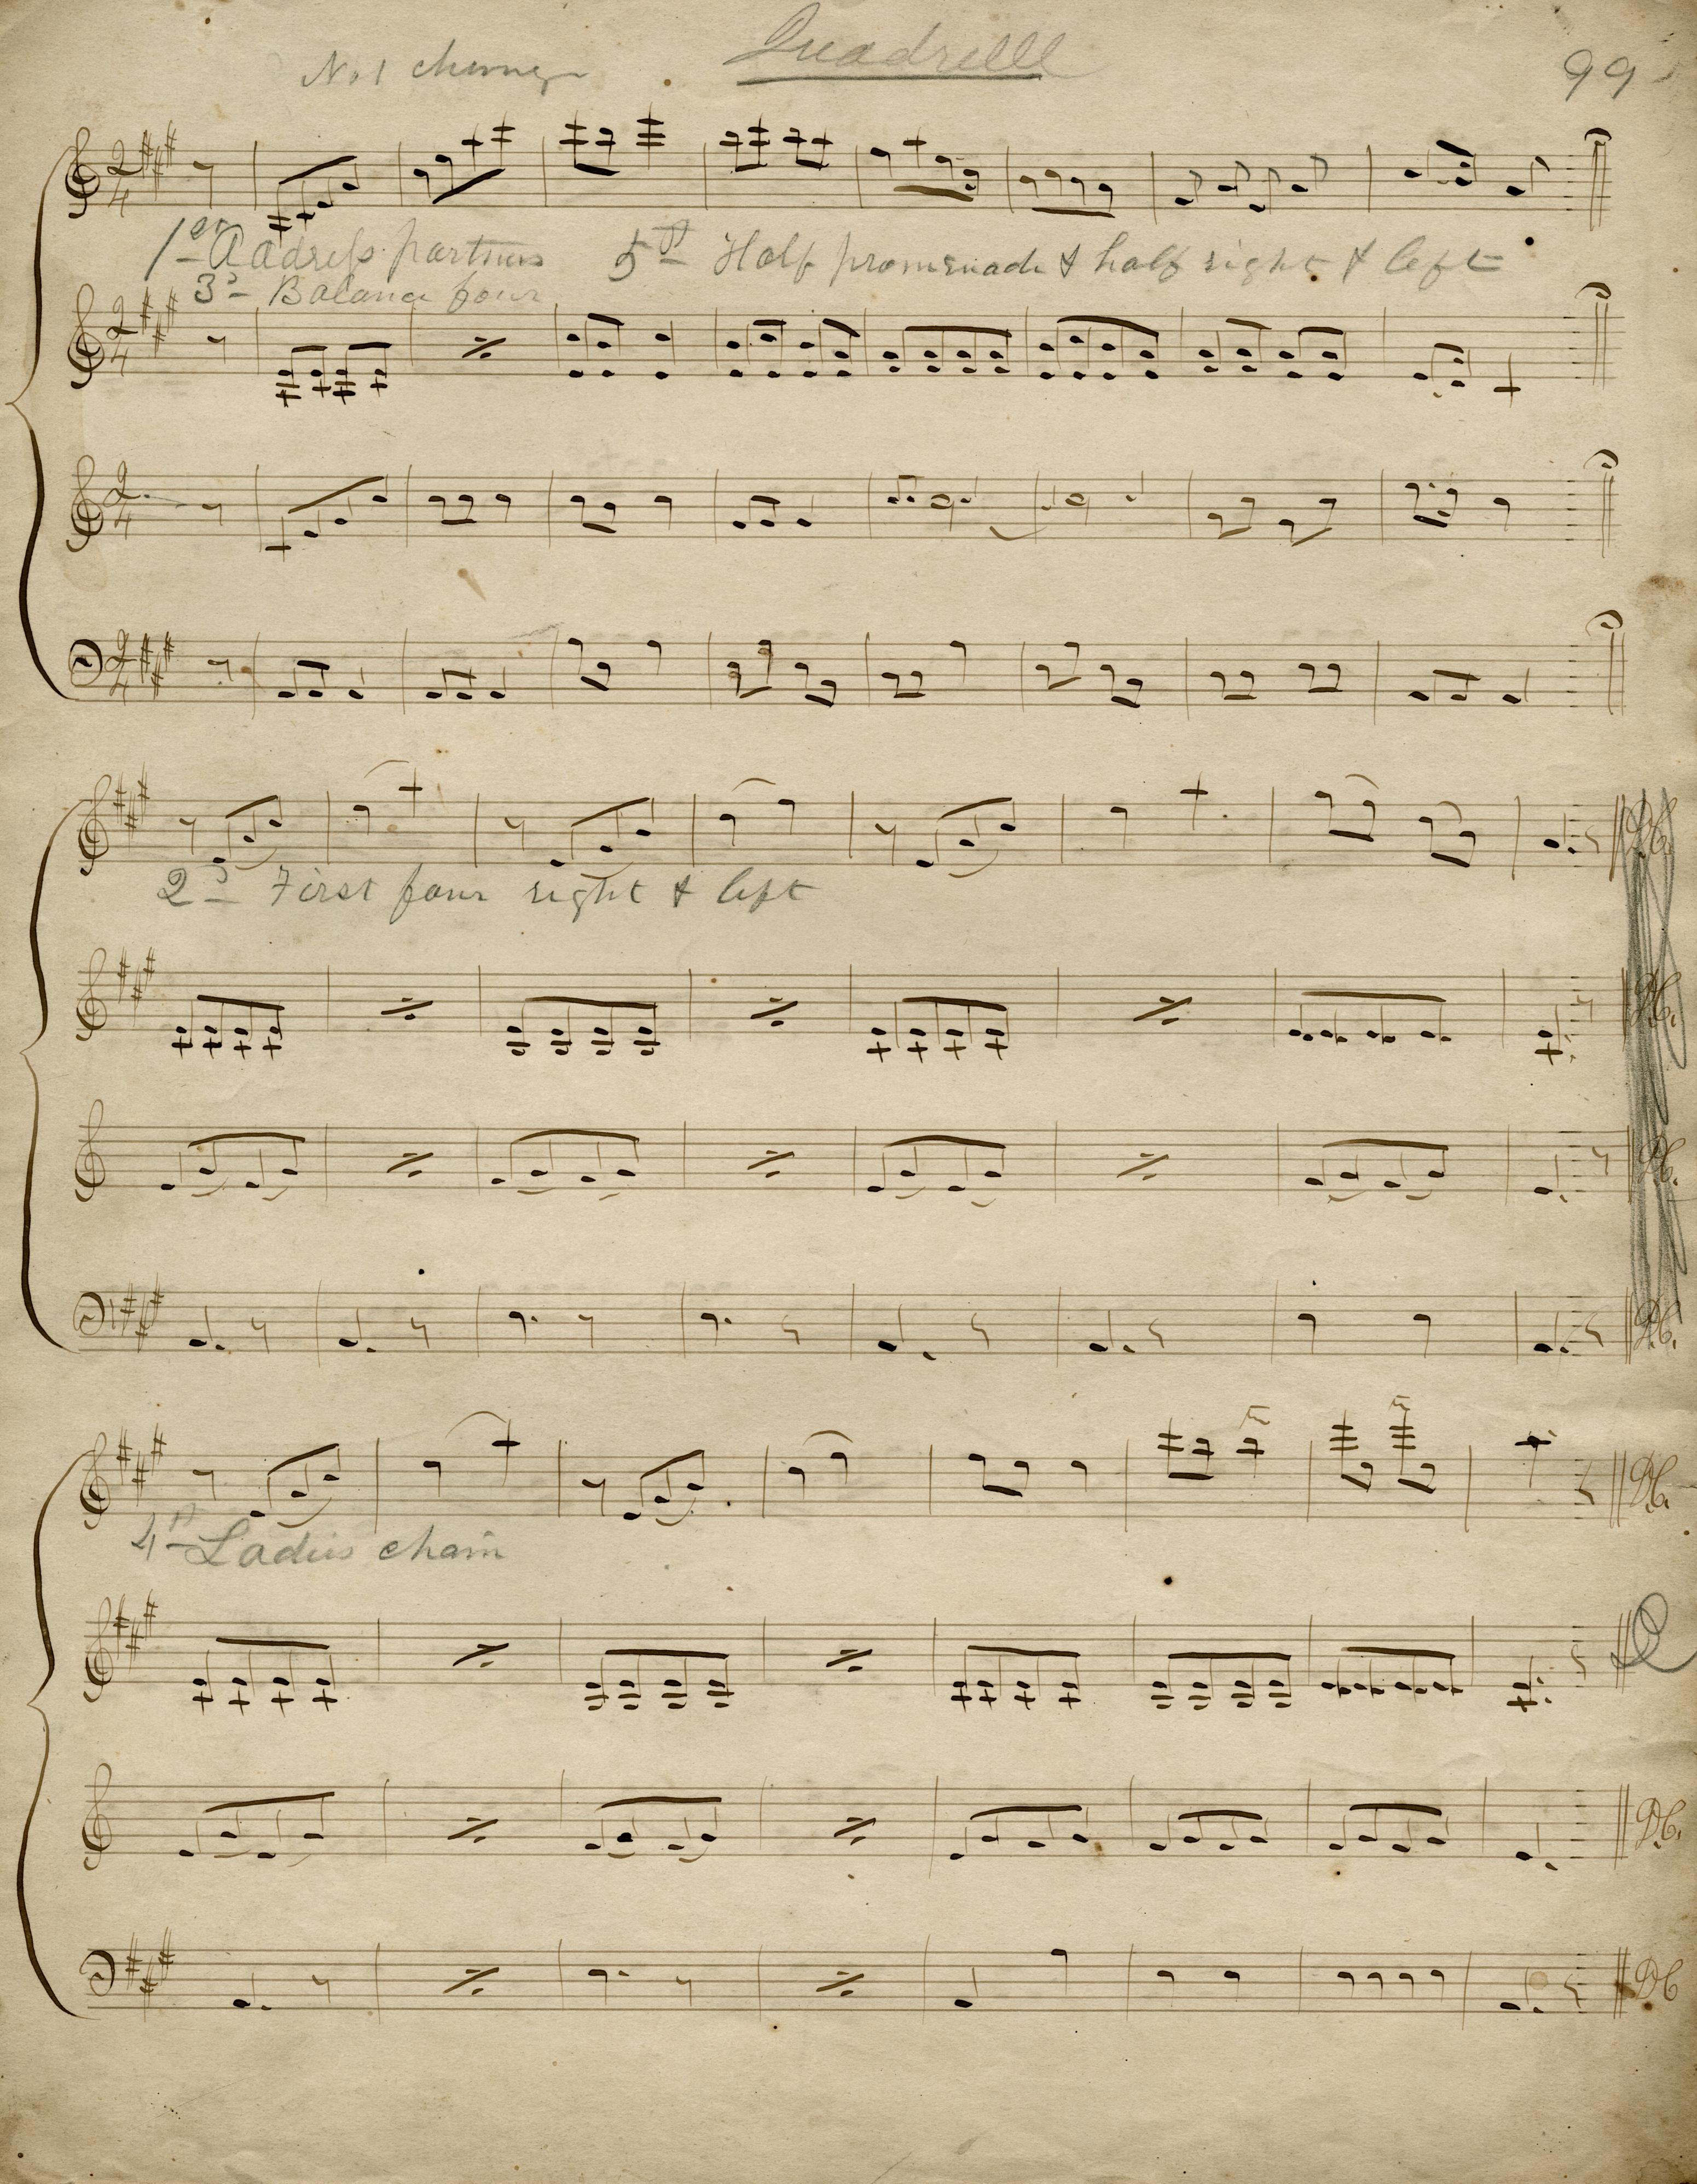 Quadrelle
No 1
99
2/4
1st Address partners 5th Half promenade & half right & left
3d Balance four
2/4
2/4
2/4
D.C.
2d First four right & left
D.C.
D.C.
D.C.
D.C.
4th Ladies chain
D.C.
D.C.